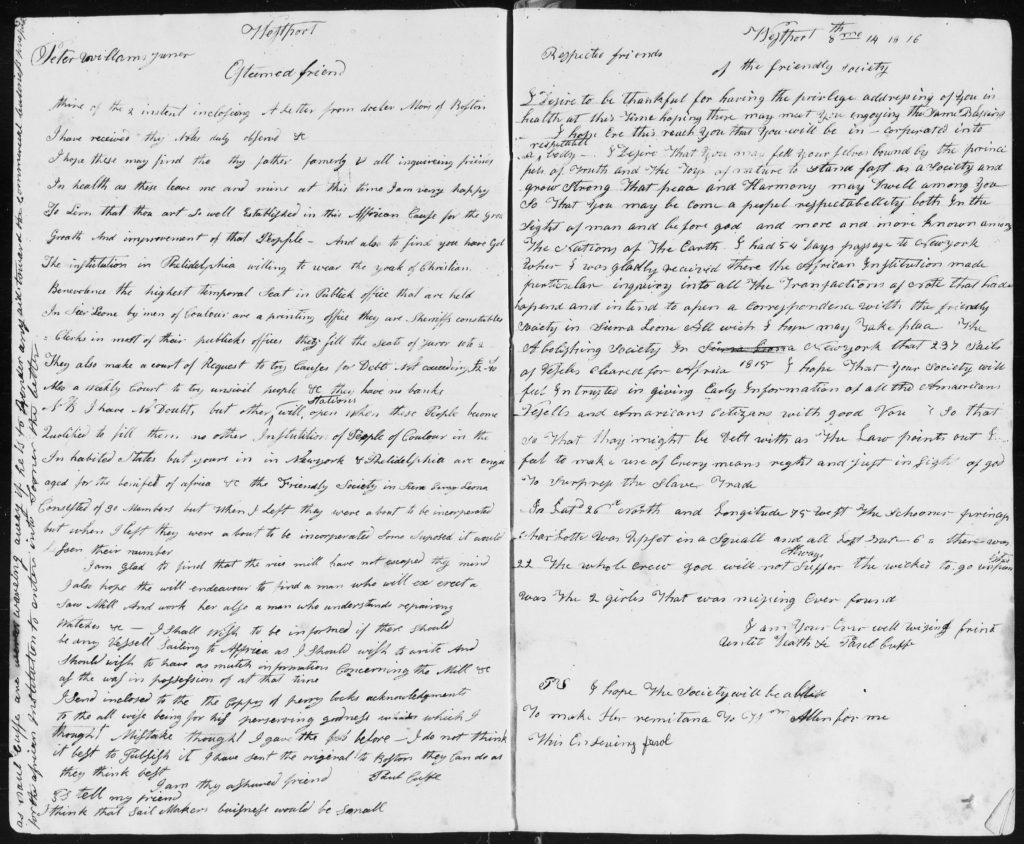 Westport
Peter Williams Juner
Esteemed friend
thine of the 2 instent inclosing A letter from docter Mors of Boston
I have received thy Note duly obsend &c
I hope these may find the thy father famerly & all inquireing friends
In health as these leave me and mine at this time I am very happy
To Lirn that thou art So well Established in this Affrican Cause for the
Groath And improvement of that People - And also to find you have Got
The institution in Philidelphia willing to wear the yoak of Christian
Benevolence the highest temporal Seat in Publick office that are held
In Leone by men of Coulour are a printing office they are Sheriffs constables
Clerks in most of their publicks offices they fill the Seats of Juror
They also make a court of Request to try Causes for Debt Not exceeding
Also a weekly Court to try uncivil people & they have no banks
Stations
N B I have No Doubts but other will open when these People become
Qualified to fill them no other Institution of People of Coulour in the
In habited States but yours in in Newyork & Philidelphia are enga
aged for the benifet of africa &c the Friendly Society in Leona
Consisted of 30 Members but When I Left they were about to be incorporated
but when I left they were about to be incorporated Some suposed it would
Soon their number
I am Glad to find that the mill have not escaped thy mind
I also hope the will endeavour to find a man who will ex erect a
Saw Mill And work her also a man who understands repairing
Watches &c - I Shall Wish to be informed if there Should
be any Vessell Sailing to Affrica as I Should wish to write And
Should wish to have as mutch information Concerning the Mill &c
as the was in possession of at that time
I Send inclosed to the the Coppy of perry locks acknowledgments
to the all wise being for his perserving goodness which I
thought Mistake thought I gave the before - I do not think
it best to Publish it I have sent the original to Boston they Can do as
they think best
I am thy asshured friend Paul Cuffe
PS tell my friend
I think that Sail Makers buisness would be Small
as Paul Cuffe are away if he is to
for the african institution to enter into
Westport 8th mo 14 1816
Respected friends
of the friendly Society
I Desire to be thankful for having the privilege addressing of You in
health at this Time hoping these may meet You engoying the Same Blessing
- I hope Ere this reach You that You will be in - corporated into
respectable
a body - I Desire That You may fell Your selves bound by the princi
pels of Truth and The Toys of nature to Stand fast as a Society and
grow Strong That peace and Harmony may Dwell among You
So That You may be come a peopel respectabellity both In the
Sight of man and before god and more and more Known among
The Nations of The Earth I had 54 Days passage to Newyork
Wher I was gladly received There the African Institution made
perticular inquiry into all The Transactions of Note that had
hapend and intend to open a Correspondence with the friendly
Society in Sierra Leone Will wich I hope may Take place The
Abolishing Society In Newyork that 237 Sails
of Vessles Cleared for Africa 1815 I hope That Your Society will
feel Intrusted in giving Early Information of all the Amaricans
Vesells and Amaricans Citizans with good So that
So That They might be Delt with as The Law points out I
feel to make use of Every means right and just in Sight of god
To Surpress the Slave Trade
In Latd 26 North and Longitude 75 west The Schooner princep
Charlotte Was Upset in a Squall and all Lost but 6 - there was
allways
22 The whole Crew god will not Suffer the wicked to go
was The 2 girls That was missing Ever found
I am Your Ever well wiging frind
untill Death &c Paul Cuffe
PS I hope The Society will be able
To make Her remitance To Allen for me
This Ensewing